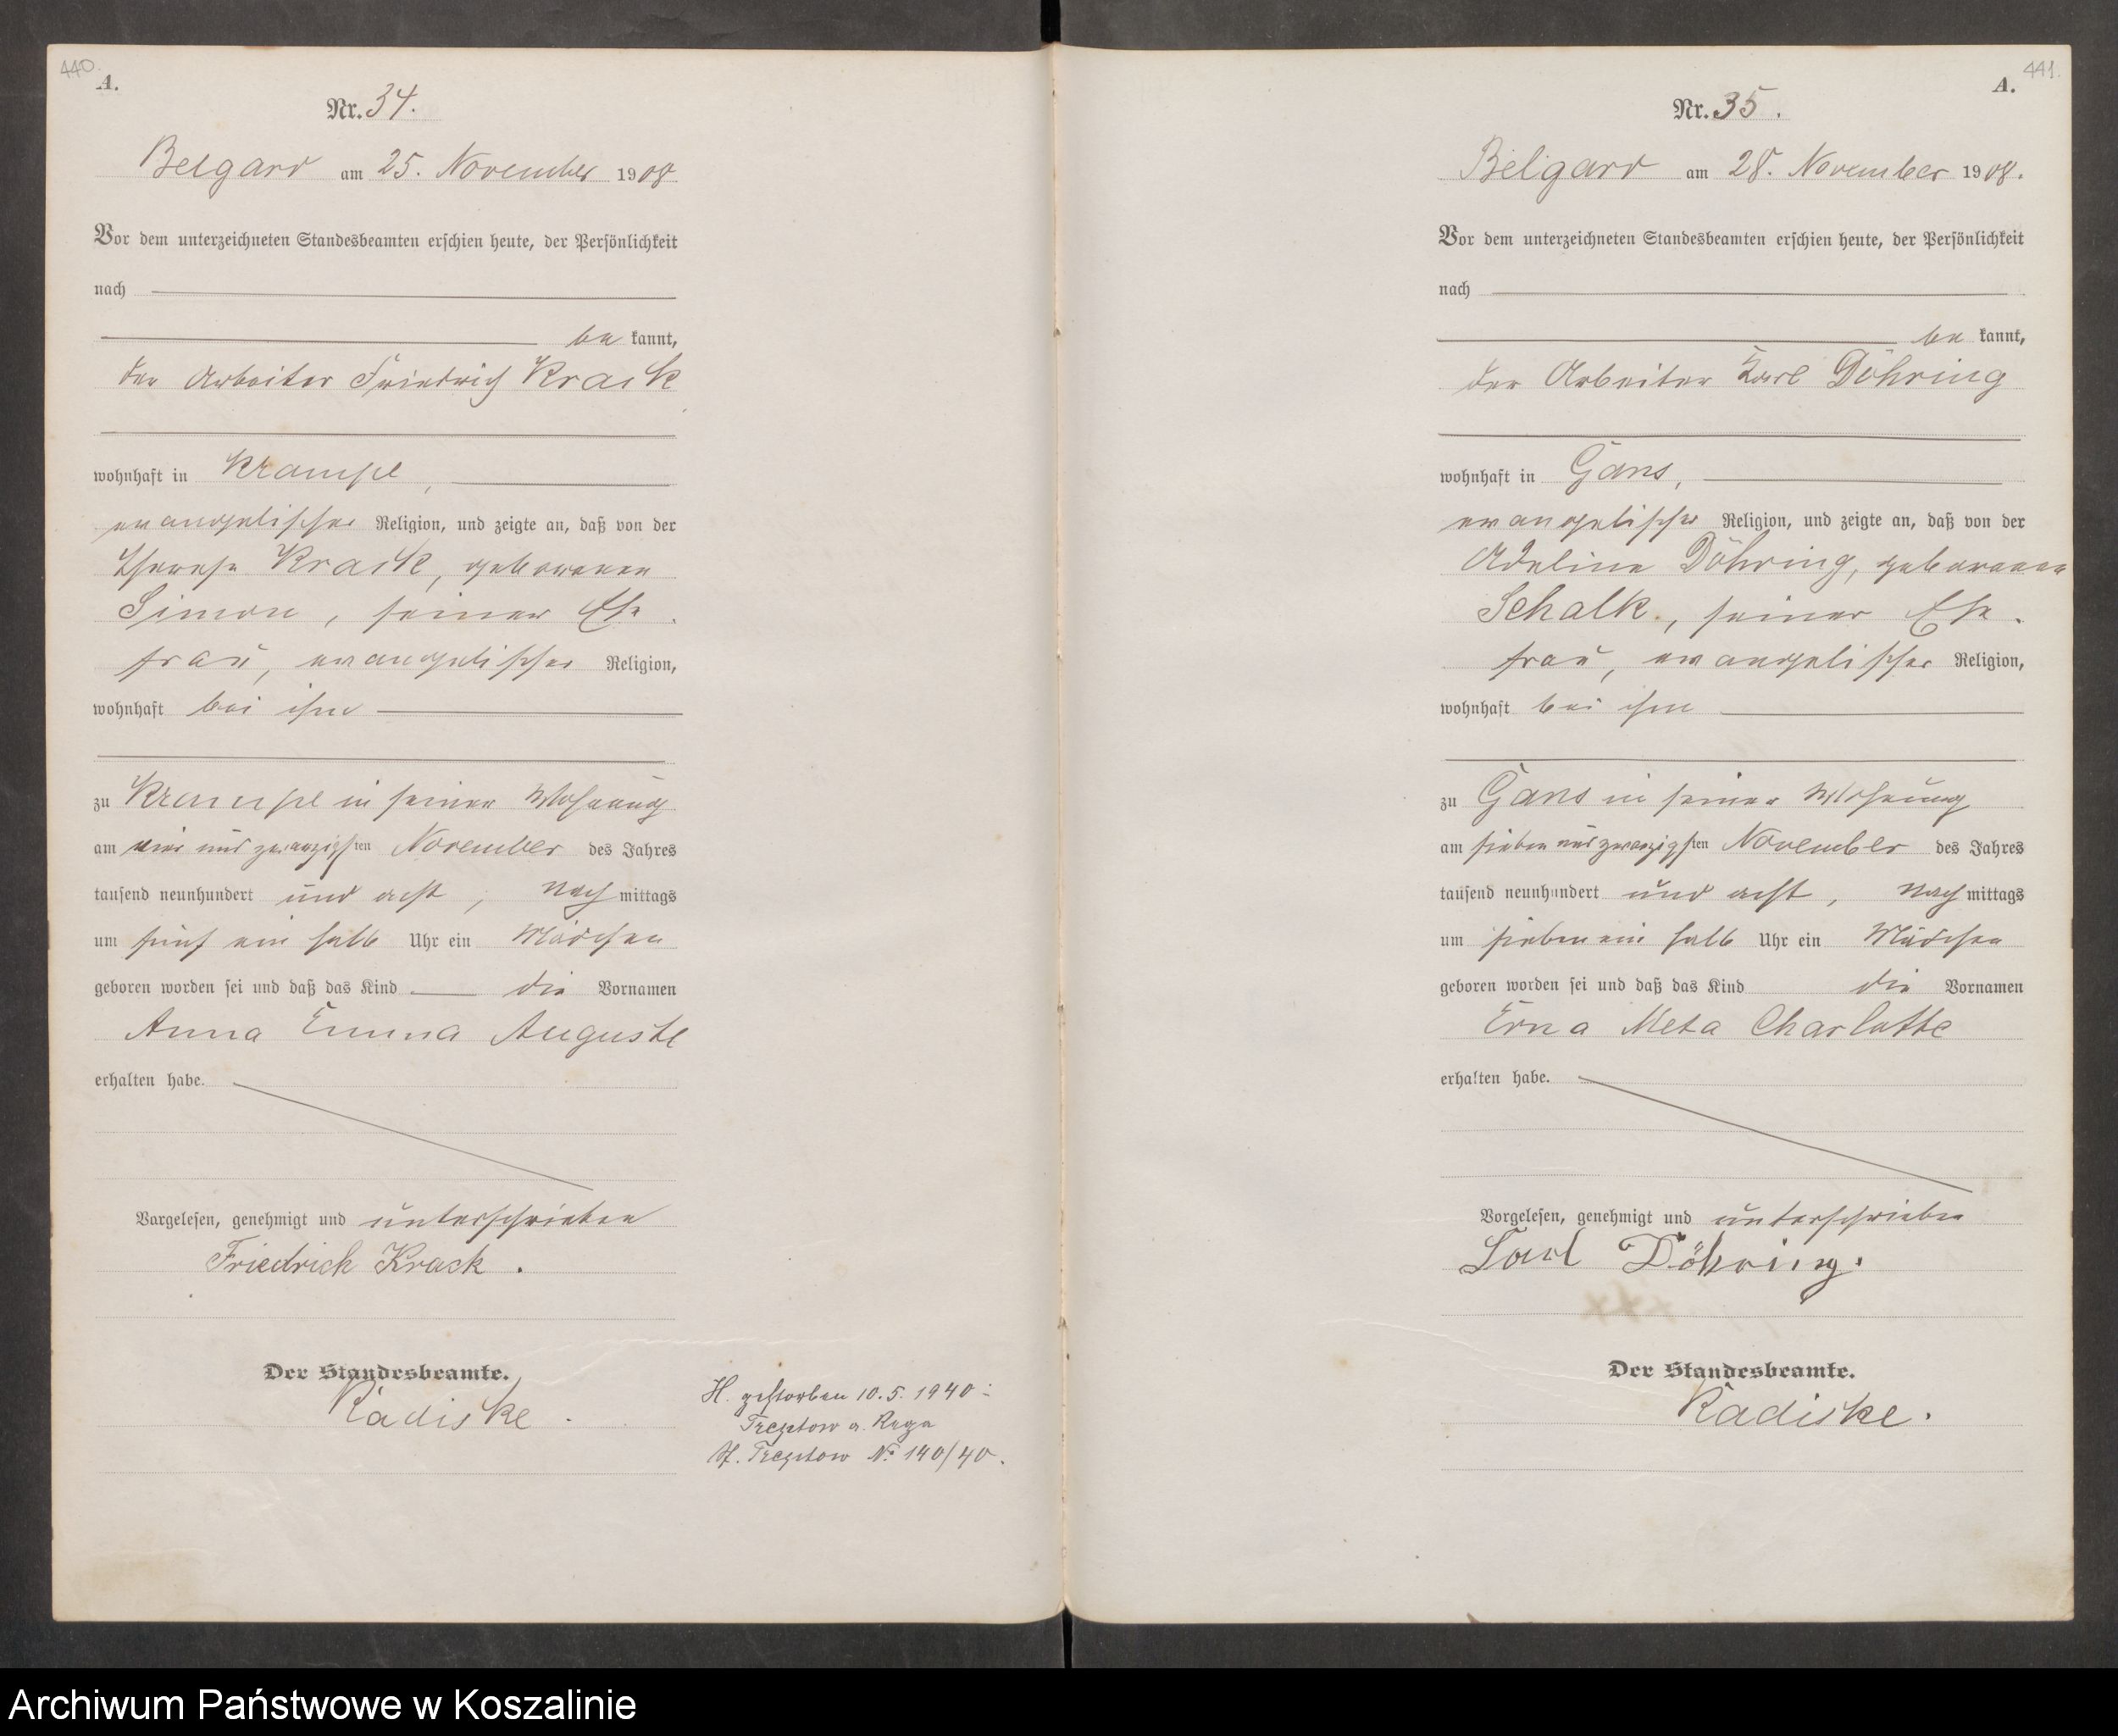 440.
A.
Nr. 34.
Belgard am 25. November 1908
Vor dem unterzeichneten Standesbeamten erschien heute, der Persönlichkeit
nach
be kannt,
der Arbeiter Friedrich Krack
wohnhaft in Krampe,
evangelischer Religion, und zeigte an, daß von der
Therese Krack, geborenen
Simon, seiner Ehe
frau, evangelischer Religion,
wohnhaft bei ihm
zu Krampe in seiner Wohnung
am vier und zwanzigsten November des Jahres
tausend neunhundert und acht, Nach mittags
um fünf ein halb Uhr ein Mädchen
geboren worden sei und daß das Kind die Vornamen
Anna Emma Auguste
erhalten habe.
Vorgelesen, genehmigt und unterschrieben
Friedrich Krack.
Der Standesbeamte.
Radiske.
H. gestorben 10.5.1940 :
Treptow a. Rega
St. Treptow No 140/40.
441.
A.
Nr. 35.
Belgard am 28. November 1908.
Vor dem unterzeichneten Standesbeamten erschien heute, der Persönlichkeit
nach
be kannt,
der Arbeiter Karl Döhring
wohnhaft in Gans,
evangelischer Religion, und zeigte an, daß von der
Adeline Döhring, geborenen
Schalk, seiner Ehe
frau, evangelischer Religion,
wohnhaft bei ihm
zu Gans in seiner Wohnung
am sieben und zwanzigsten November des Jahres
tausend neunhundert und acht, Nach mittags
um sieben ein halb Uhr ein Mädchen
geboren worden sei und daß das Kind die Vornamen
Erna Meta Charlotte
erhalten habe.
Vorgelesen, genehmigt und unterschrieben
Karl Döhring.
Der Standesbeamte.
Radiske.
Archiwum Państwowe w Koszalinie